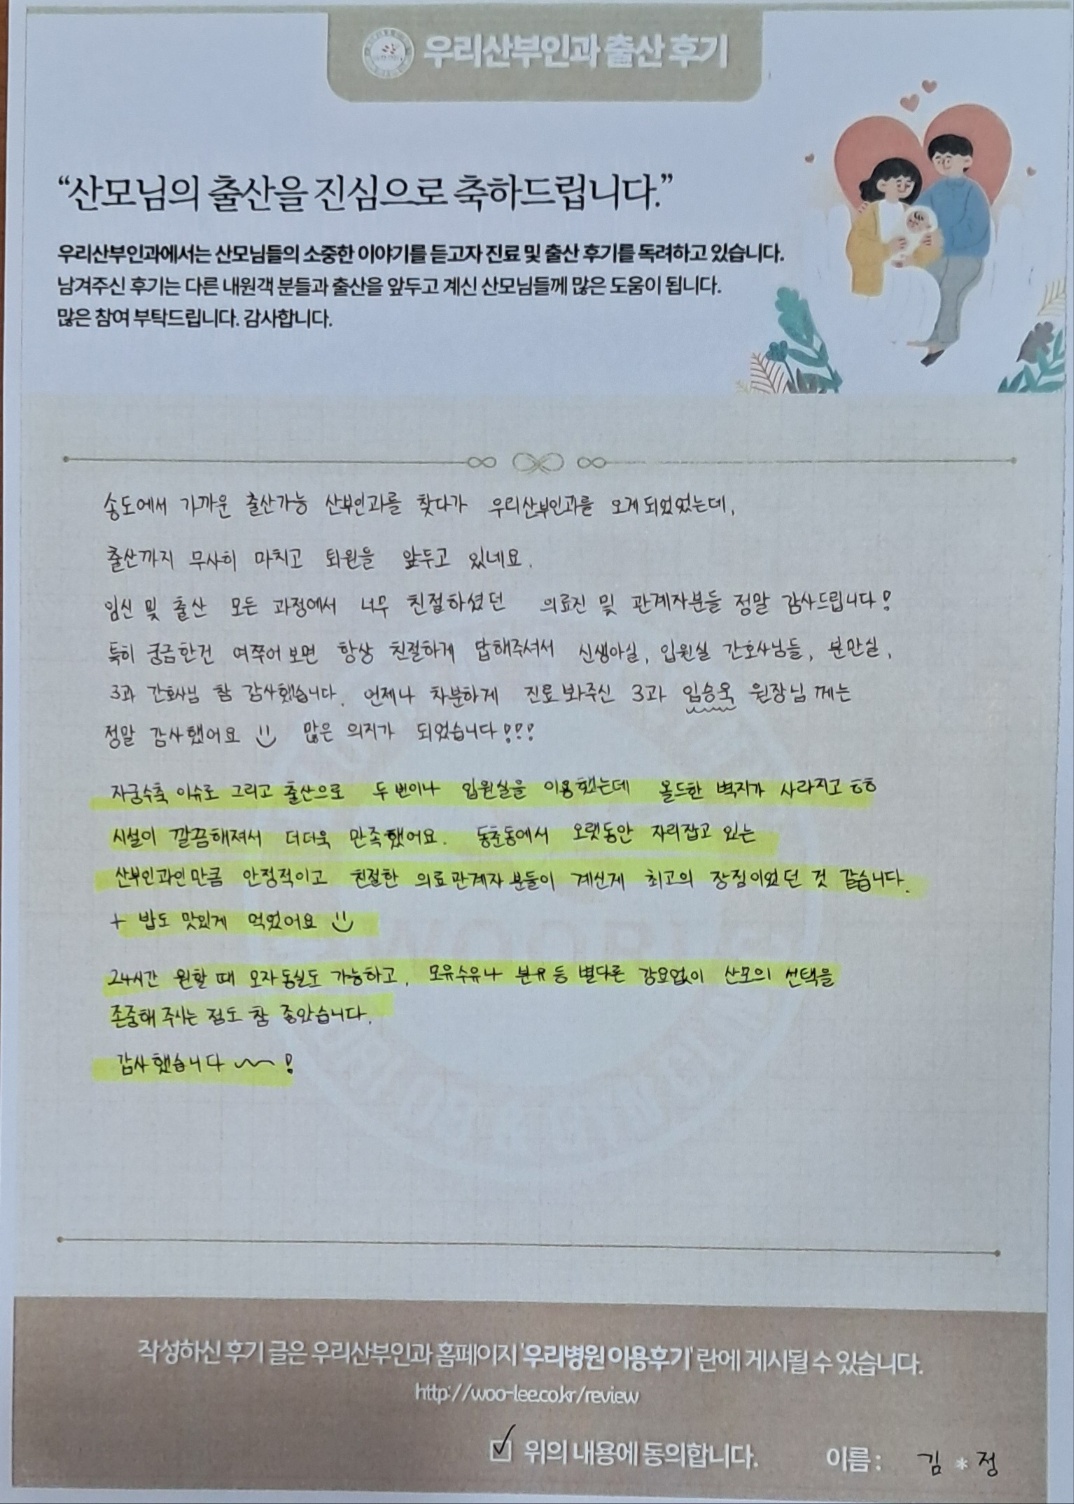 우리산부인과 출산 후기
“산모님의 출산을 진심으로 축하드립니다.”
우리산부인과에서는 산모님들의 소중한 이야기를 듣고자 진료 및 출산 후기를 독려하고 있습니다.
남겨주신 후기는 다른 내원객 분들과 출산을 앞두고 계신 산모님들께 많은 도움이 됩니다.
많은 참여 부탁드립니다. 감사합니다.
송도에서 가까운 출산가능 산부인과를 찾다가 우리산부인과를 오게되었었는데,
출산까지 무사히 마치고 퇴원을 앞두고 있네요.
임신 및 출산 모든 과정에서 너무 친절하셨던 의료진 및 관계자분들 정말 감사드립니다!
특히 궁금한건 여쭈어보면 항상 친절하게 답해주셔서 신생아실, 입원실 간호사님들, 분만실,
3과 간호사님 참 감사했습니다. 언제나 차분하게 진료 봐주신 3과 임승욱 원장님께는
정말 감사했어요 많은 의지가 되었습니다!!!
자궁수축 이슈로 그리고 출산으로 두 번이나 입원실을 이용했는데 올드한 벽지가 사라지고 ㅎㅎ
시설이 깔끔해져서 더더욱 만족했어요. 동춘동에서 오랫동안 자리잡고 있는
산부인과인만큼 안정적이고 친절한 의료관계자분들이 계신게 최고의 장점이었던 것 같습니다.
+ 밥도 맛있게 먹었어요
24시간 원할 때 모자동실도 가능하고, 모유수유나 분유 등 별다른 강요없이 산모의 선택을
존중해 주시는 점도 참 좋았습니다.
감사했습니다 ~~!
작성하신 후기 글은 우리산부인과 홈페이지 '우리병원 이용후기' 란에 게시될 수 있습니다.
http://woo-lee.co.kr/review
위의 내용에 동의합니다. 이름 : 김 * 정